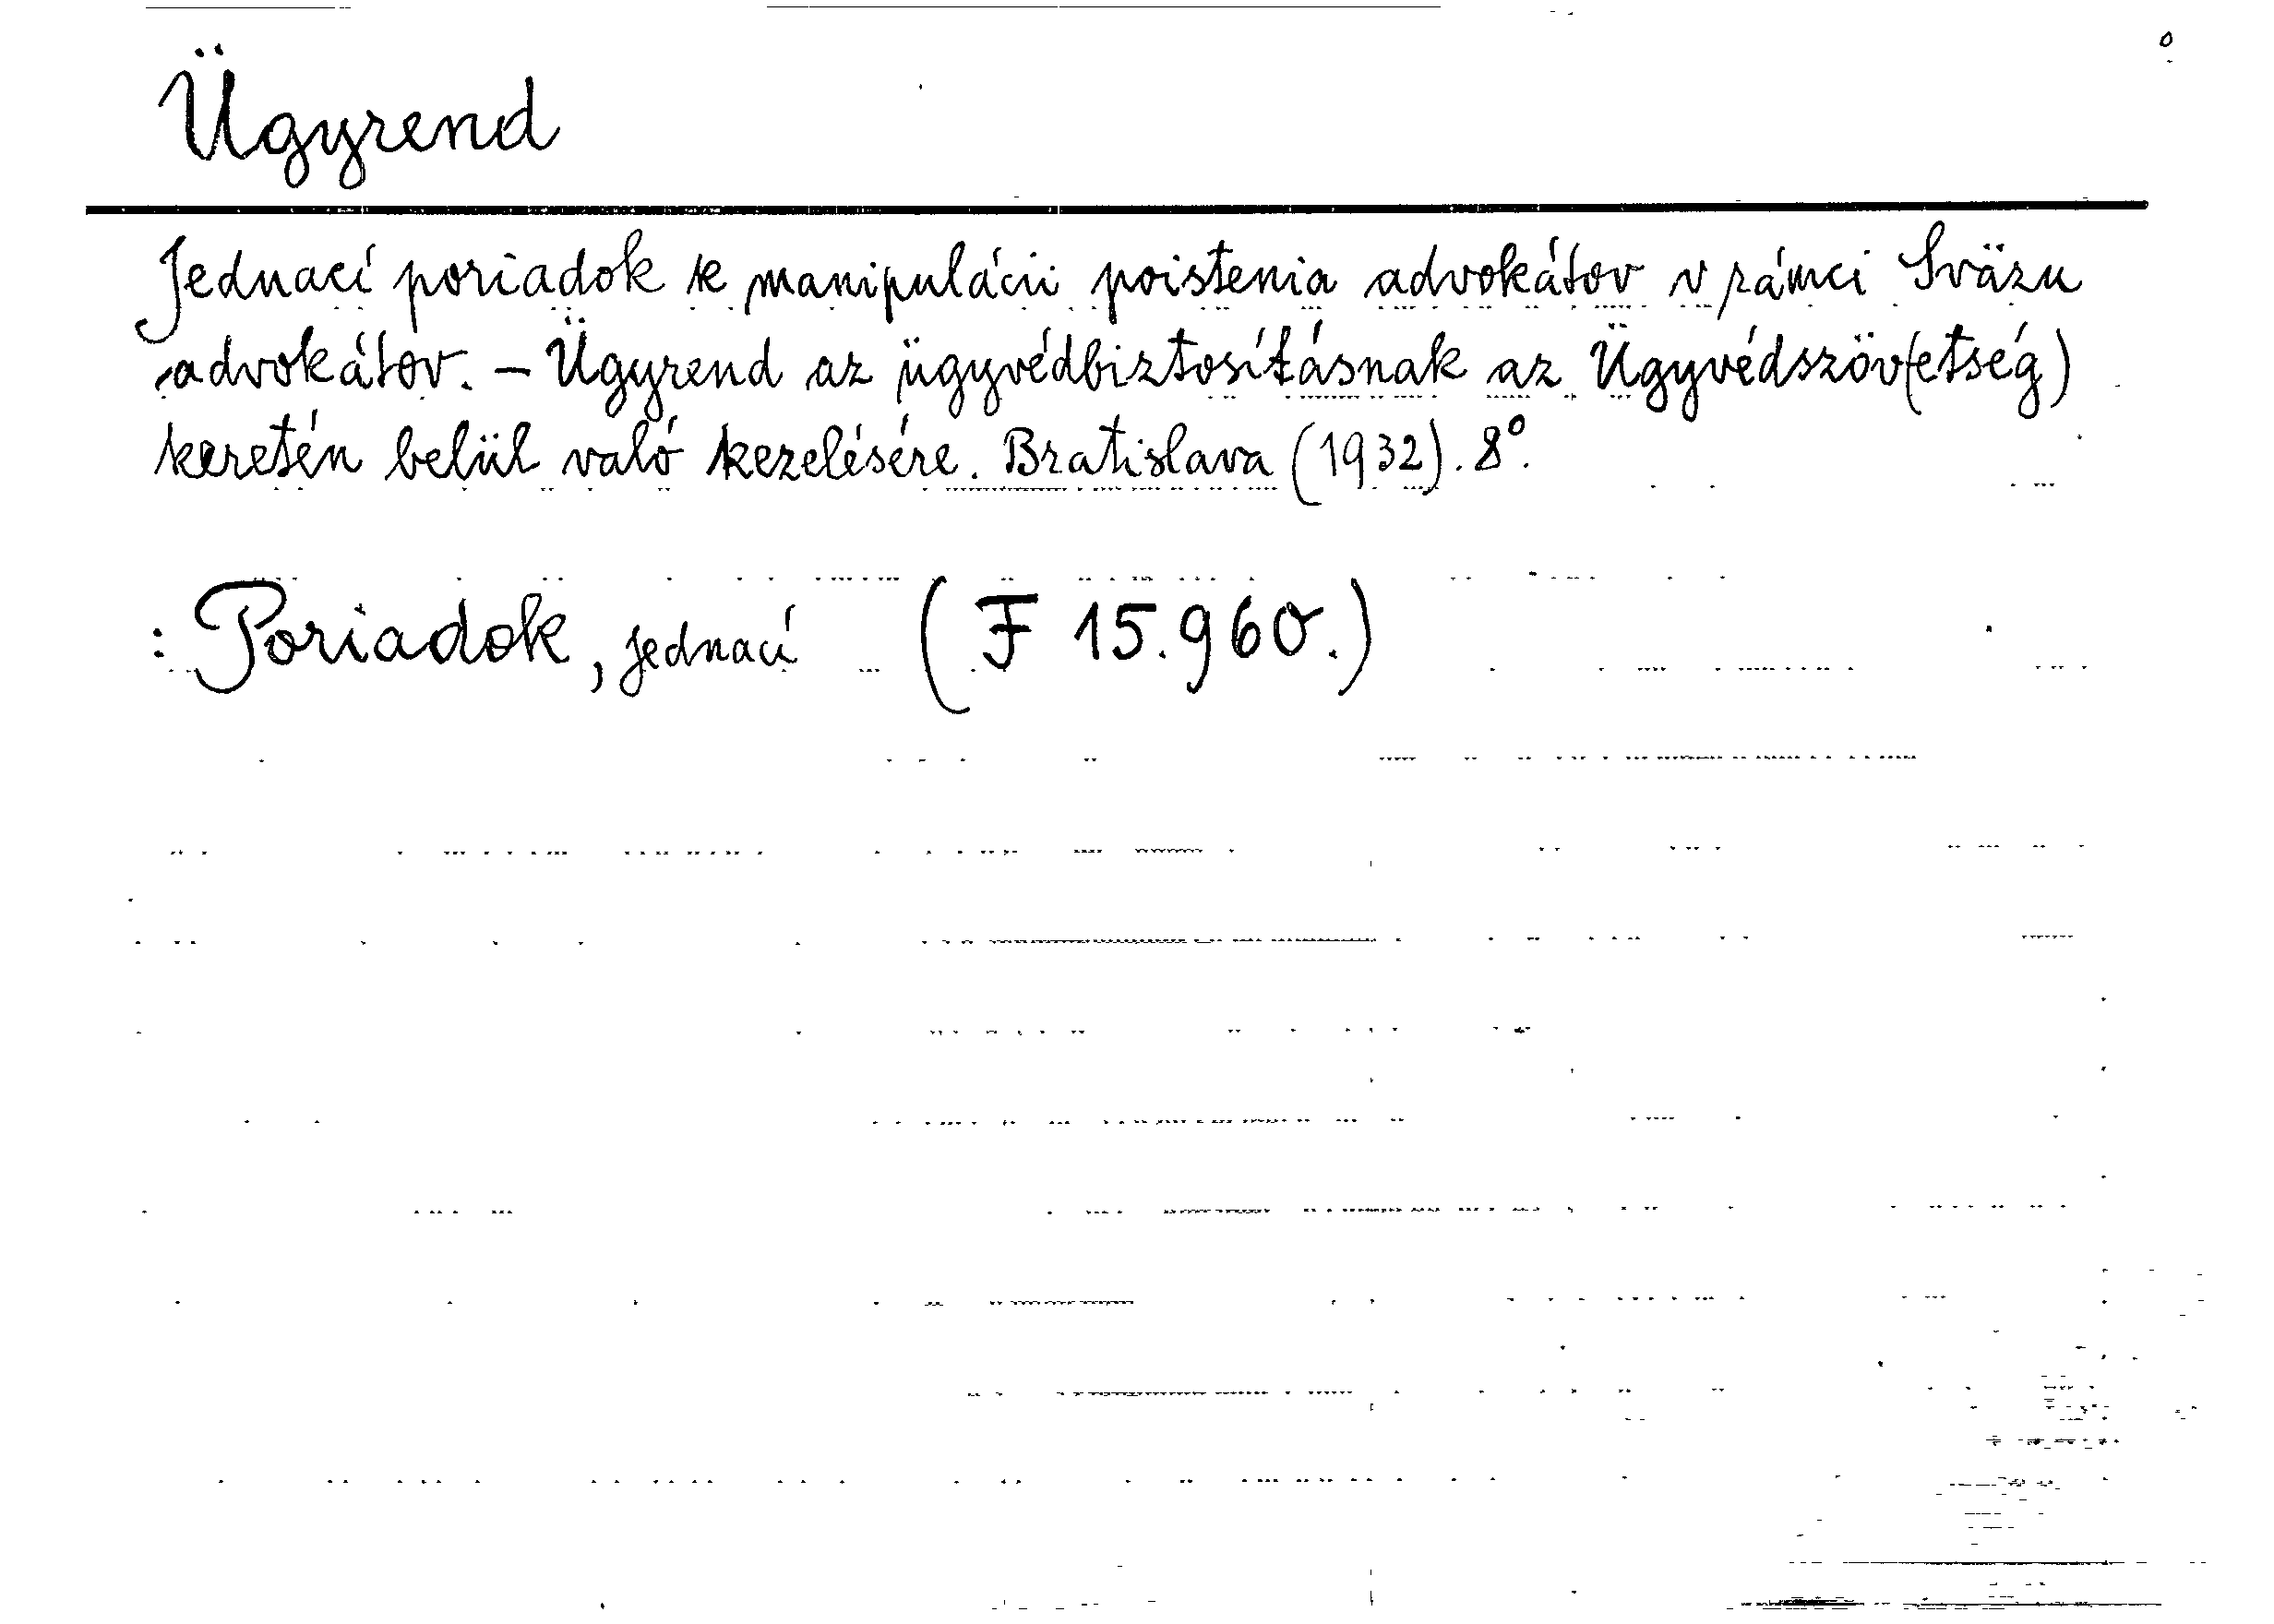 Ügyrend
Jednací poriadok k manipulácii poistenia advokátov v rámci Sväzu
advokátov. — Ügyrend az ügyvédbiztosításnak az Ügyvédszöv(etség)
keretén belül való kezelésére. Bratislava (1932). 8°.
: Poriadok, jednací (F 15.960.)